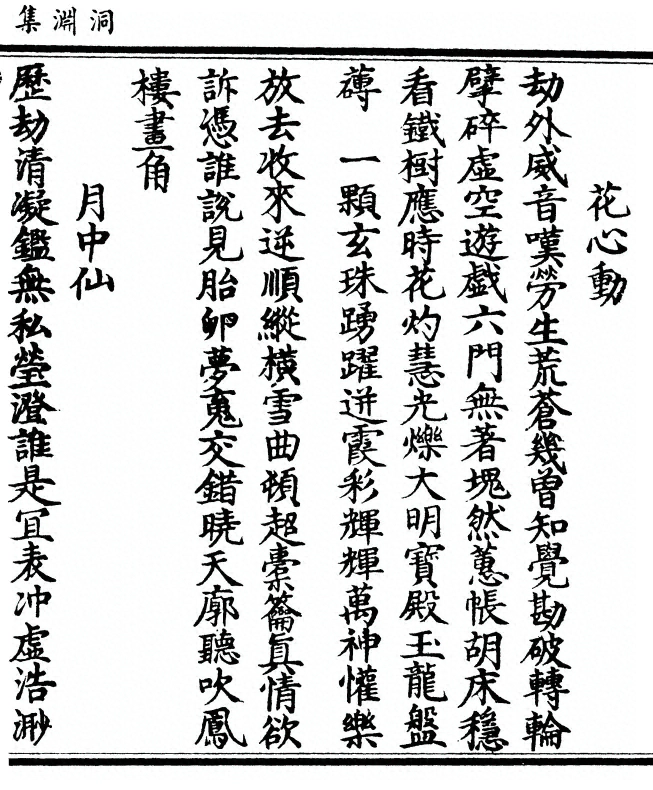 洞淵集
花心動
劫外威音嘆勞生荒蒼幾曾知覺勘破轉輪
擘碎虛空遊戲六門無著塊然蕙帳胡床穩
看鐵樹應時花灼慧光爍大明寶殿玉龍盤
礴　一顆玄珠踴躍迸霞彩輝輝萬神懽樂
放去收來逆順縱橫雪曲頓超橐籥真情欲
訴憑誰說見胎卵夢魂交錯曉天廓聽吹鳳
樓畫角
月中仙
歷劫清凝鑑無私瑩澄誰是冝表冲虛浩渺